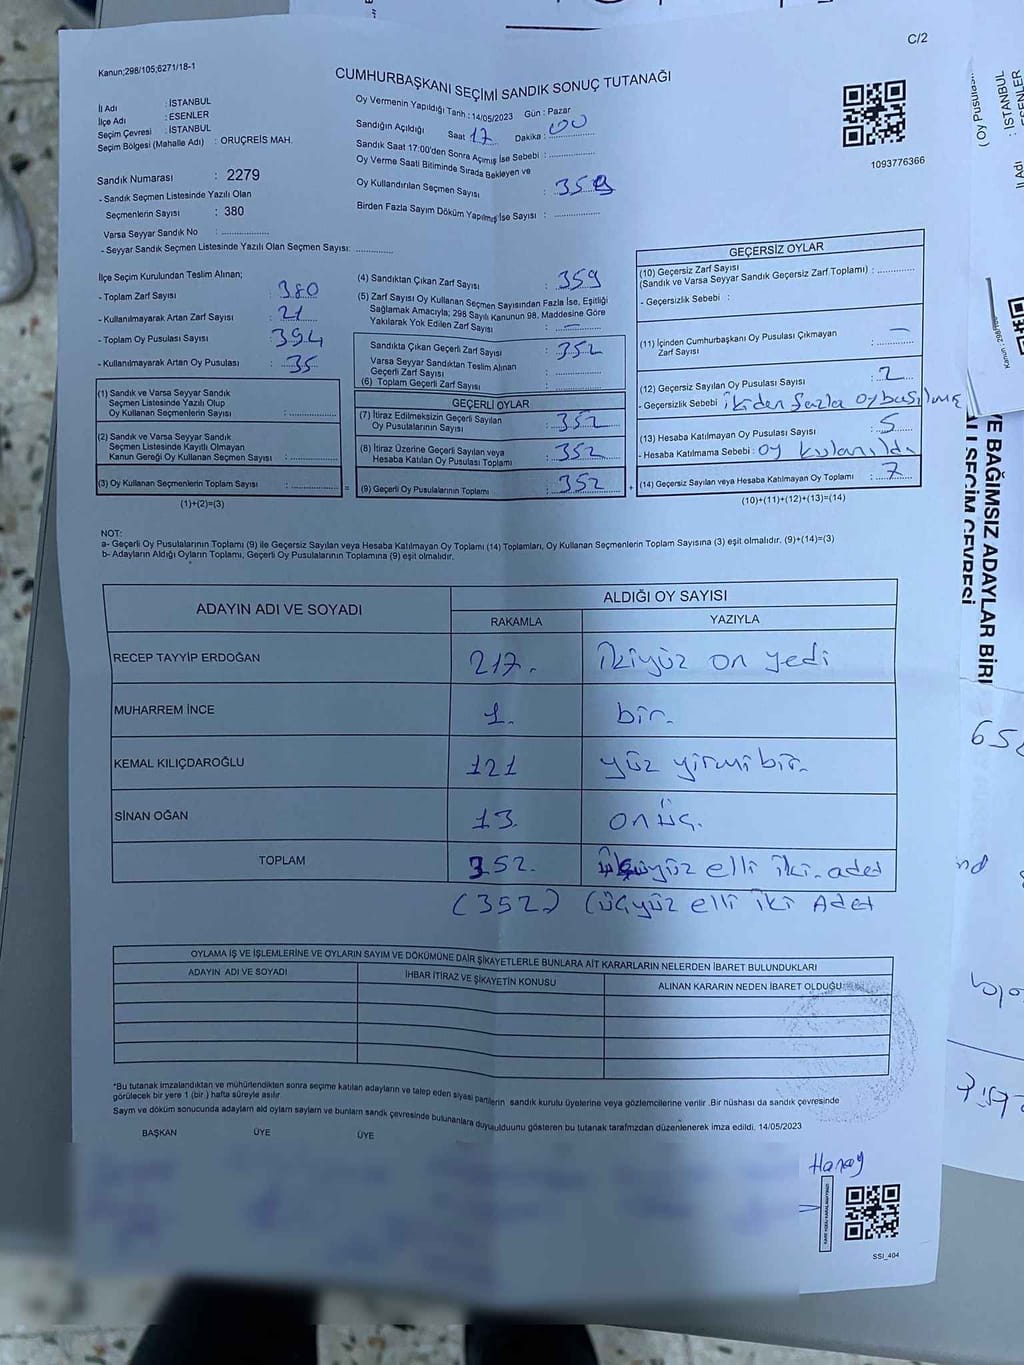 C/2
Kanun;298/105;6271/18-1
CUMHURBAŞKANI SEÇİMİ SANDIK SONUÇ TUTANAĞI
İl Adı : İSTANBUL
İlçe Adı : ESENLER
Seçim Çevresi : İSTANBUL
Seçim Bölgesi (Mahalle Adı) : ORUÇREİS MAH.
Sandık Numarası : 2279
- Sandık Seçmen Listesinde Yazılı Olan
Seçmenlerin Sayısı : 380
Varsa Seyyar Sandık No : ..............
- Seyyar Sandık Seçmen Listesinde Yazılı Olan Seçmen Sayısı: ............
Oy Vermenin Yapıldığı Tarih : 14/05/2023 Gün : Pazar
Sandığın Açıldığı Saat 17 Dakika : 00
Sandık Saat 17:00'den Sonra Açımış İse Sebebi : ..............
Oy Verme Saati Bitiminde Sırada Bekleyen ve
Oy Kullandırılan Seçmen Sayısı : 359
Birden Fazla Sayım Döküm Yapılmış İse Sayısı : ..............
1093776366
İlçe Seçim Kurulundan Teslim Alınan;
- Toplam Zarf Sayısı : 380
- Kullanılmayarak Artan Zarf Sayısı : 21
- Toplam Oy Pusulası Sayısı : 394
- Kullanılmayarak Artan Oy Pusulası : 35
(1) Sandık ve Varsa Seyyar Sandık
Seçmen Listesinde Yazılı Olup
Oy Kullanan Seçmenlerin Sayısı : ..............
(2) Sandık ve Varsa Seyyar Sandık
Seçmen Listesinde Kayıtlı Olmayan
Kanun Gereği Oy Kullanan Seçmen Sayısı : ..............
(3) Oy Kullanan Seçmenlerin Toplam Sayısı : ..............
(1)+(2)=(3)
(4) Sandıktan Çıkan Zarf Sayısı : 359
(5) Zarf Sayısı Oy Kullanan Seçmen Sayısından Fazla İse, Eşitliği
Sağlamak Amacıyla; 298 Sayılı Kanunun 98. Maddesine Göre
Yakılarak Yok Edilen Zarf Sayısı : —
Sandıkta Çıkan Geçerli Zarf Sayısı : 352
Varsa Seyyar Sandıktan Teslim Alınan
Geçerli Zarf Sayısı : ..............
(6) Toplam Geçerli Zarf Sayısı : ..............
GEÇERLİ OYLAR
(7) İtiraz Edilmeksizin Geçerli Sayılan
Oy Pusulalarının Sayısı : 352
(8) İtiraz Üzerine Geçerli Sayılan veya
Hesaba Katılan Oy Pusulası Toplamı : 352
=
(9) Geçerli Oy Pusulalarının Toplamı : 352
+
GEÇERSİZ OYLAR
(10) Geçersiz Zarf Sayısı
(Sandık ve Varsa Seyyar Sandık Geçersiz Zarf Toplamı) : ............
- Geçersizlik Sebebi :
(11) İçinden Cumhurbaşkanı Oy Pusulası Çıkmayan
Zarf Sayısı : —
(12) Geçersiz Sayılan Oy Pusulası Sayısı : 2
- Geçersizlik Sebebi : ikiden fazla oy basılmış
(13) Hesaba Katılmayan Oy Pusulası Sayısı : 5
- Hesaba Katılmama Sebebi : oy kulanıldı
(14) Geçersiz Sayılan veya Hesaba Katılmayan Oy Toplamı : 7
(10)+(11)+(12)+(13)=(14)
NOT:
a- Geçerli Oy Pusulalarının Toplamı (9) ile Geçersiz Sayılan veya Hesaba Katılmayan Oy Toplamı (14) Toplamları, Oy Kullanan Seçmenlerin Toplam Sayısına (3) eşit olmalıdır. (9)+(14)=(3)
b- Adayların Aldığı Oyların Toplamı, Geçerli Oy Pusulalarının Toplamına (9) eşit olmalıdır.
ADAYIN ADI VE SOYADI ALDIĞI OY SAYISI
RAKAMLA YAZIYLA
RECEP TAYYİP ERDOĞAN 217. ikiyüz on yedi
MUHARREM İNCE 1. bir.
KEMAL KILIÇDAROĞLU 121 yüz yirmi bir.
SİNAN OĞAN 13. onüç.
TOPLAM 352. üçyüz elli iki. adet
(352) (üçyüz elli iki Adet
OYLAMA İŞ VE İŞLEMLERİNE VE OYLARIN SAYIM VE DÖKÜMÜNE DAİR ŞİKAYETLERLE BUNLARA AİT KARARLARIN NELERDEN İBARET BULUNDUKLARI
ADAYIN ADI VE SOYADI İHBAR İTİRAZ VE ŞİKAYETİN KONUSU ALINAN KARARIN NEDEN İBARET OLDUĞU
*Bu tutanak imzalandıktan ve mühürlendikten sonra seçime katılan adayların ve talep eden siyasi partilerin sandık kurulu üyelerine veya gözlemcilerine verilir .Bir nüshası da sandık çevresinde
görülecek bir yere 1 (bir ) hafta süreyle asılır
Sayım ve döküm sonucunda adayların aldı oyların sayların ve bunların sandk çevresinde bulunanlara duyurulduunu gösteren bu tutanak tarafmzdan düzenlenerek imza edildi. 14/05/2023
BAŞKAN ÜYE ÜYE
SSI_404
(Oy Pusulas
: İSTANBUL
: ESENLER
İl Adı
E BAĞIMSIZ ADAYLAR BİRL
Lİ SEÇİM ÇEVRESİ